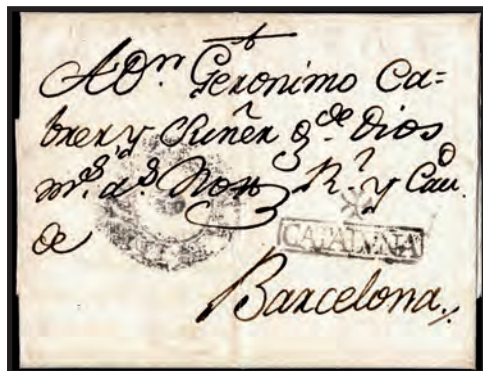 A Dn. Geronimo Ca=
brer y Suñer g.de Dios
m.s a.s Notr R.l y Cau.o
de
CATALUÑA
Barcelona